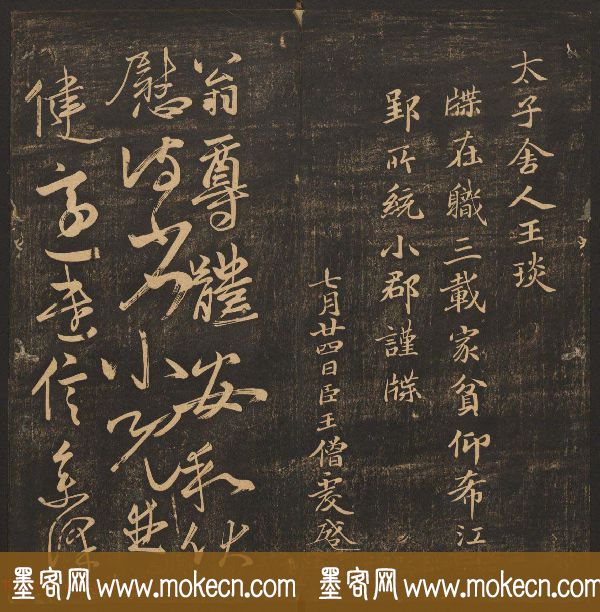 太子舍人王琰
牒在職三載家貧仰希江
郢所統小郡謹牒
七月廿四日臣王僧虔啟
翁尊體安和伏
慰侍省小兒並
健適遣信集澤
墨客网 www.mokecn.com 墨客网 www.mokecn.com